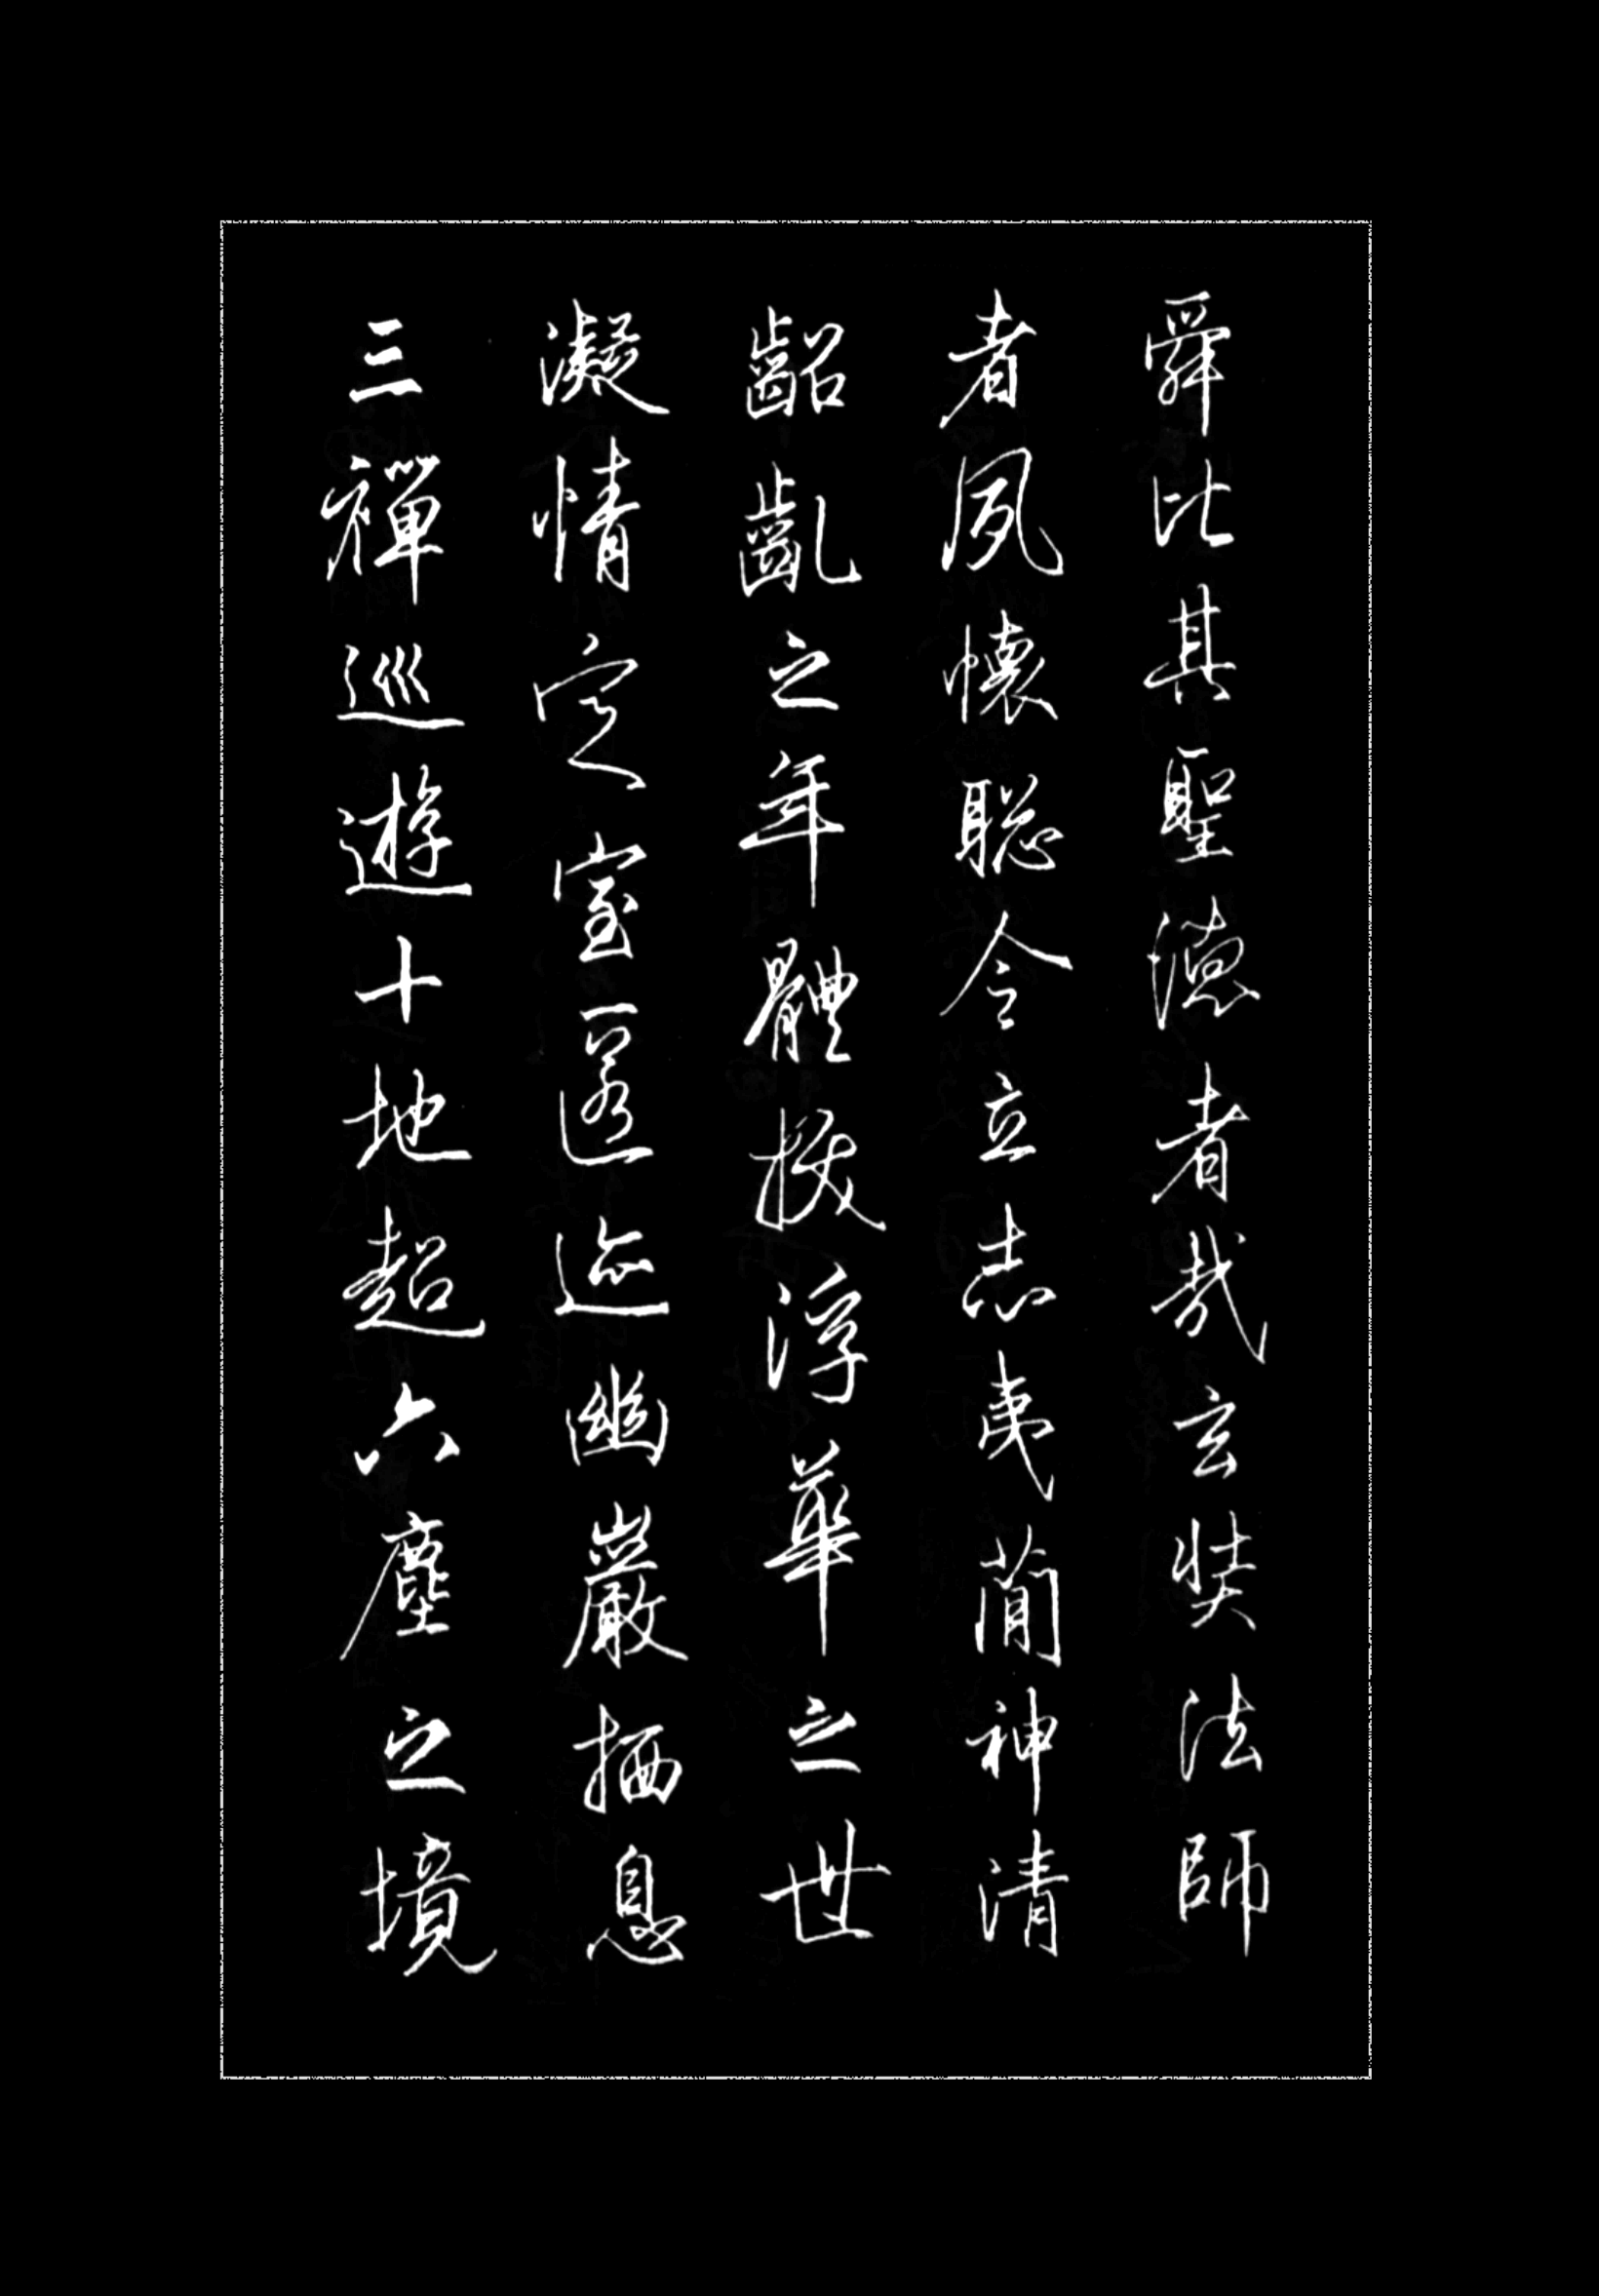 舜比其聖德者哉玄奘法師
者夙懷聡令立志夷蕳神清
齠齓之年體拔浮華之世
凝情定室匿迹幽巖栖息
三禪巡遊十地超六塵之境